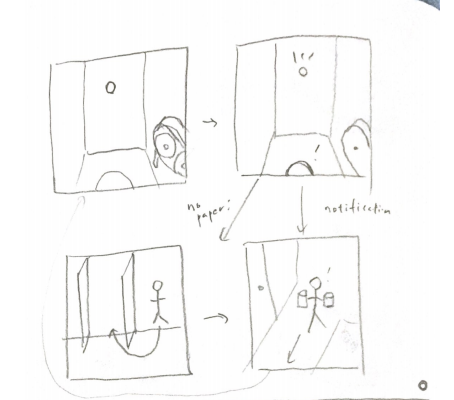 no
paper!
notification